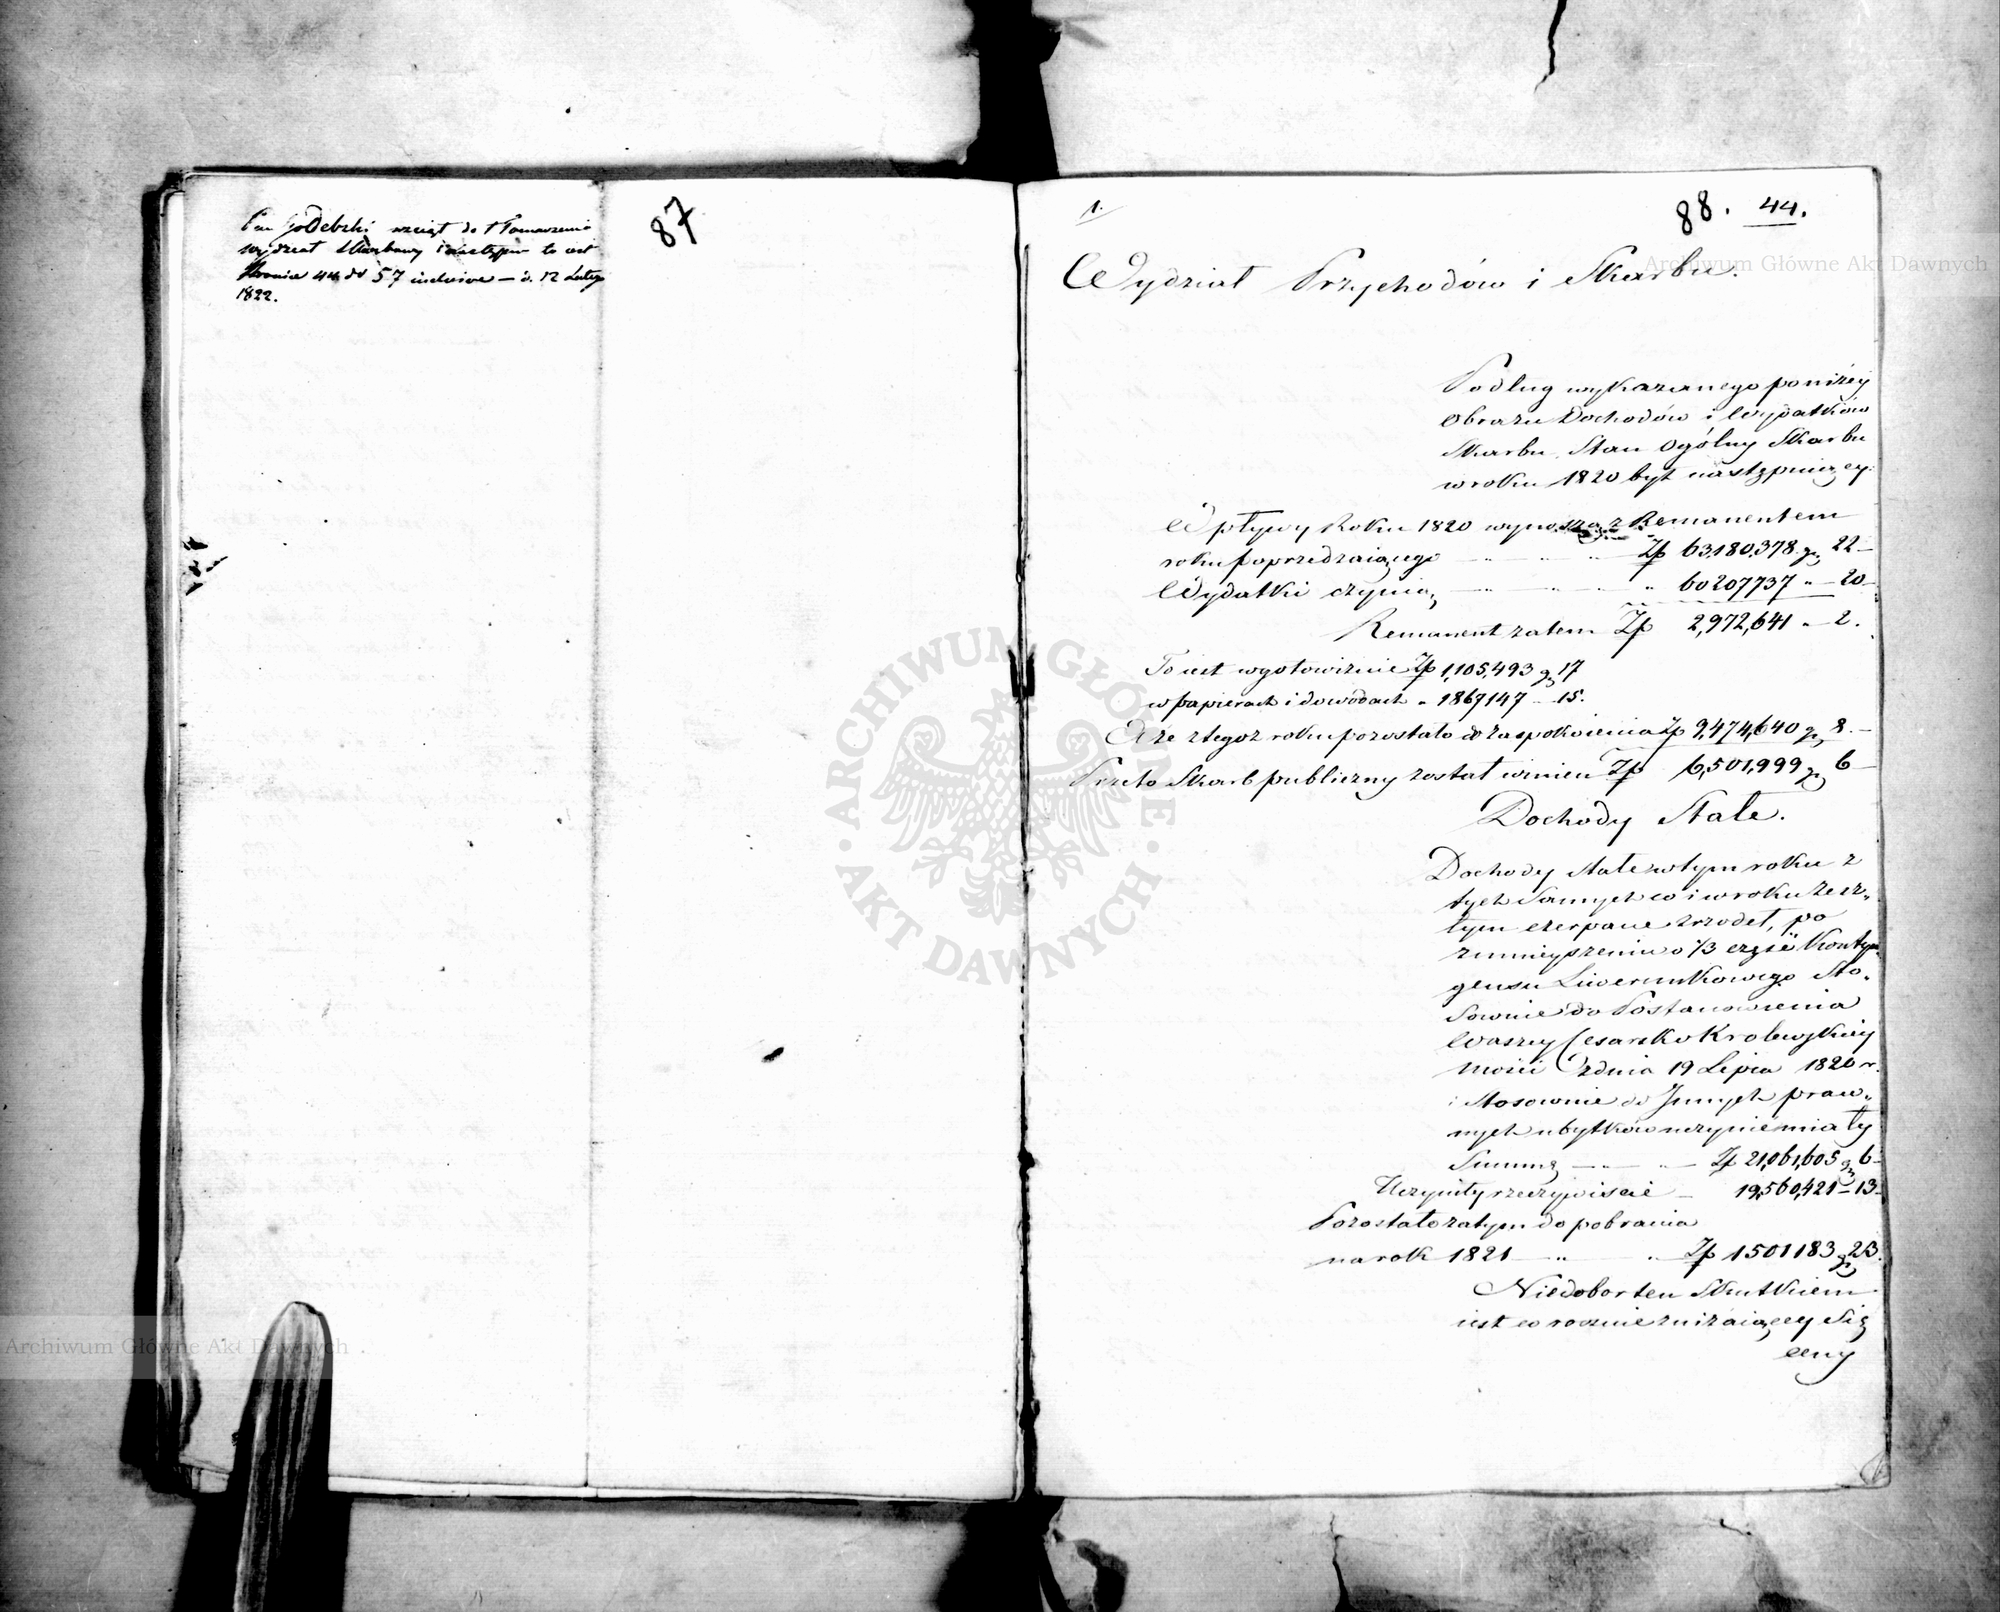 Pan Godebski wziął do tłomaczenia
wydział Skarbowy i następn to iest
stronice 44 do 57 inclusive — d. 12 Lutego
1822.
87
1.
88. 44.
Wydział Przychodów i Skarbu.
Podług wykazanego poniżey
Obrazu Dochodów i Wydatków
Skarbu, Stan Ogólny Skarbu
w roku 1820 był następuiący:
Wpływy Roku 1820 wynoszą z Remanentem
roku poprzedzaiącego Zp 63,180,378 gr 22 —
Wydatki czynią " 60207737 " — 20 —
Remanent zatem Zp 2,972,641 " — 2.
To iest w gotowiznie Zp 1,105,493 gr 17
w papierach i dowodach " 1867147 — 15.
A że z tegoż roku pozostało do zaspokoienia Zp 9,474,640 gr 8. —
Przeto Skarb publiczny został winien Zp 6,501,999 gr 6 —
Dochody Stałe.
Dochody stałe w tym roku z
tych samych co i w roku zesz„
łym czerpane zrzodeł, po
zmnieyszeniu o 1/3 część Kontyn„
gensu Liwerunkowego sto„
sownie do Postanowienia
Waszey Cesarsko Krolewskiey
Mości z dnia 19 Lipca 1820 r.
i stosownie do Innych praw„
nych ubytków uczynić miały
Summę — Zp 21,061,605 gr 6 —
Uczyniły rzeczywiscie — 19,560,421 — 13 —
Pozostało zatym do pobrania
na rok 1821 — " — " Zp 1501183 gr 23.
Niedobor ten Skutkiem
iest co rocznie zniżaiącey się
ceny
Archiwum Główne Akt Dawnych
· ARCHIWUM GŁÓWNE · AKT DAWNYCH ·
Archiwum Główne Akt Dawnych